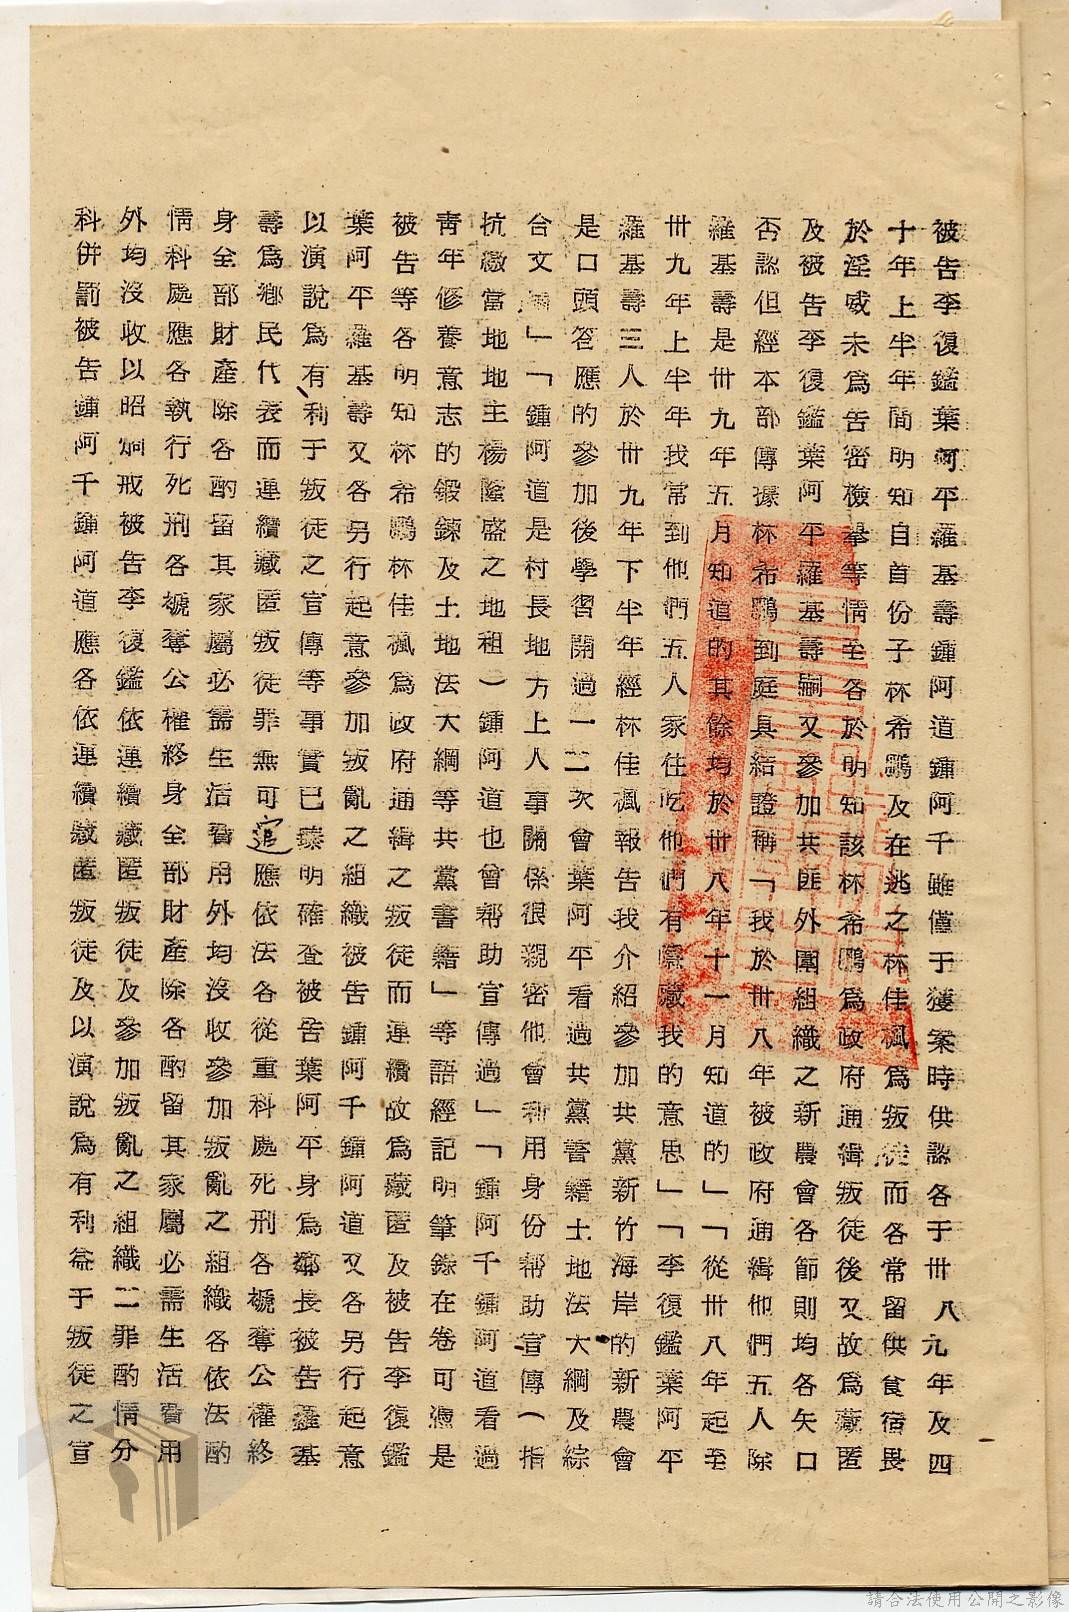 被告李復鑑葉阿平羅基壽鍾阿道鍾阿千雖僅于獲案時供認各于卅八九年及四
十年上半年間明知自首份子林希鵬及在逃之林佳楓為叛徒而各常留供食宿畏
於淫威未為告密檢舉等情至各於明知該林希鵬為政府通緝叛徒後又故為藏匿
及被告李復鑑葉阿平羅基壽嗣又參加共匪外圍組織之新農會各節則均各矢口
否認但經本部傳據林希鵬到庭具結證稱「我於卅八年被政府通緝他們五人除
羅基壽是卅九年五月知道的其餘均於卅八年十一月知道的」「從卅八年起至
卅九年上半年我常到他們五人家住吃他們有隱藏我的意思」「李復鑑葉阿平
羅基壽三人於卅九年下半年經林佳楓報告我介紹參加共黨新竹海岸的新農會
是口頭答應的參加後學習開過一二次會葉阿平看過共黨書籍土地法大綱及綜
合文 」「鍾阿道是村長地方上人事關係很親密他會利用身份幫助宣傳(指
抗繳當地地主楊隆盛之地租)鍾阿道也曾幫助宣傳過」「鍾阿千鍾阿道看過
青年修養意志的鍛鍊及土地法大綱等共黨書籍」等語經記明筆錄在卷可憑是
被告等各明知林希鵬林佳楓為政府通緝之叛徒而連續故為藏匿及被告李復鑑
葉阿平羅基壽又各另行起意參加叛亂之組織被告鍾阿千鍾阿道又各另行起意
以演說為有、利于叛徒之宣傳等事實已臻明確查被告葉阿平身為鄰長被告羅基
壽為鄉民代表而連續藏匿叛徒罪無可逭應依法各從重科處死刑各褫奪公權終
身全部財產除各酌留其家屬必需生活費用外均沒收參加叛亂之組織各依法酌
情科處應各執行死刑各褫奪公權終身全部財產除各酌留其家屬必需生活費用
外均沒收以昭炯戒被告李復鑑依連續藏匿叛徒及參加叛亂之組織二罪酌情分
科併罰被告鍾阿千鍾阿道應各依連續藏匿叛徒及以演說為有利益于叛徒之宣
請合法使用公開之影像